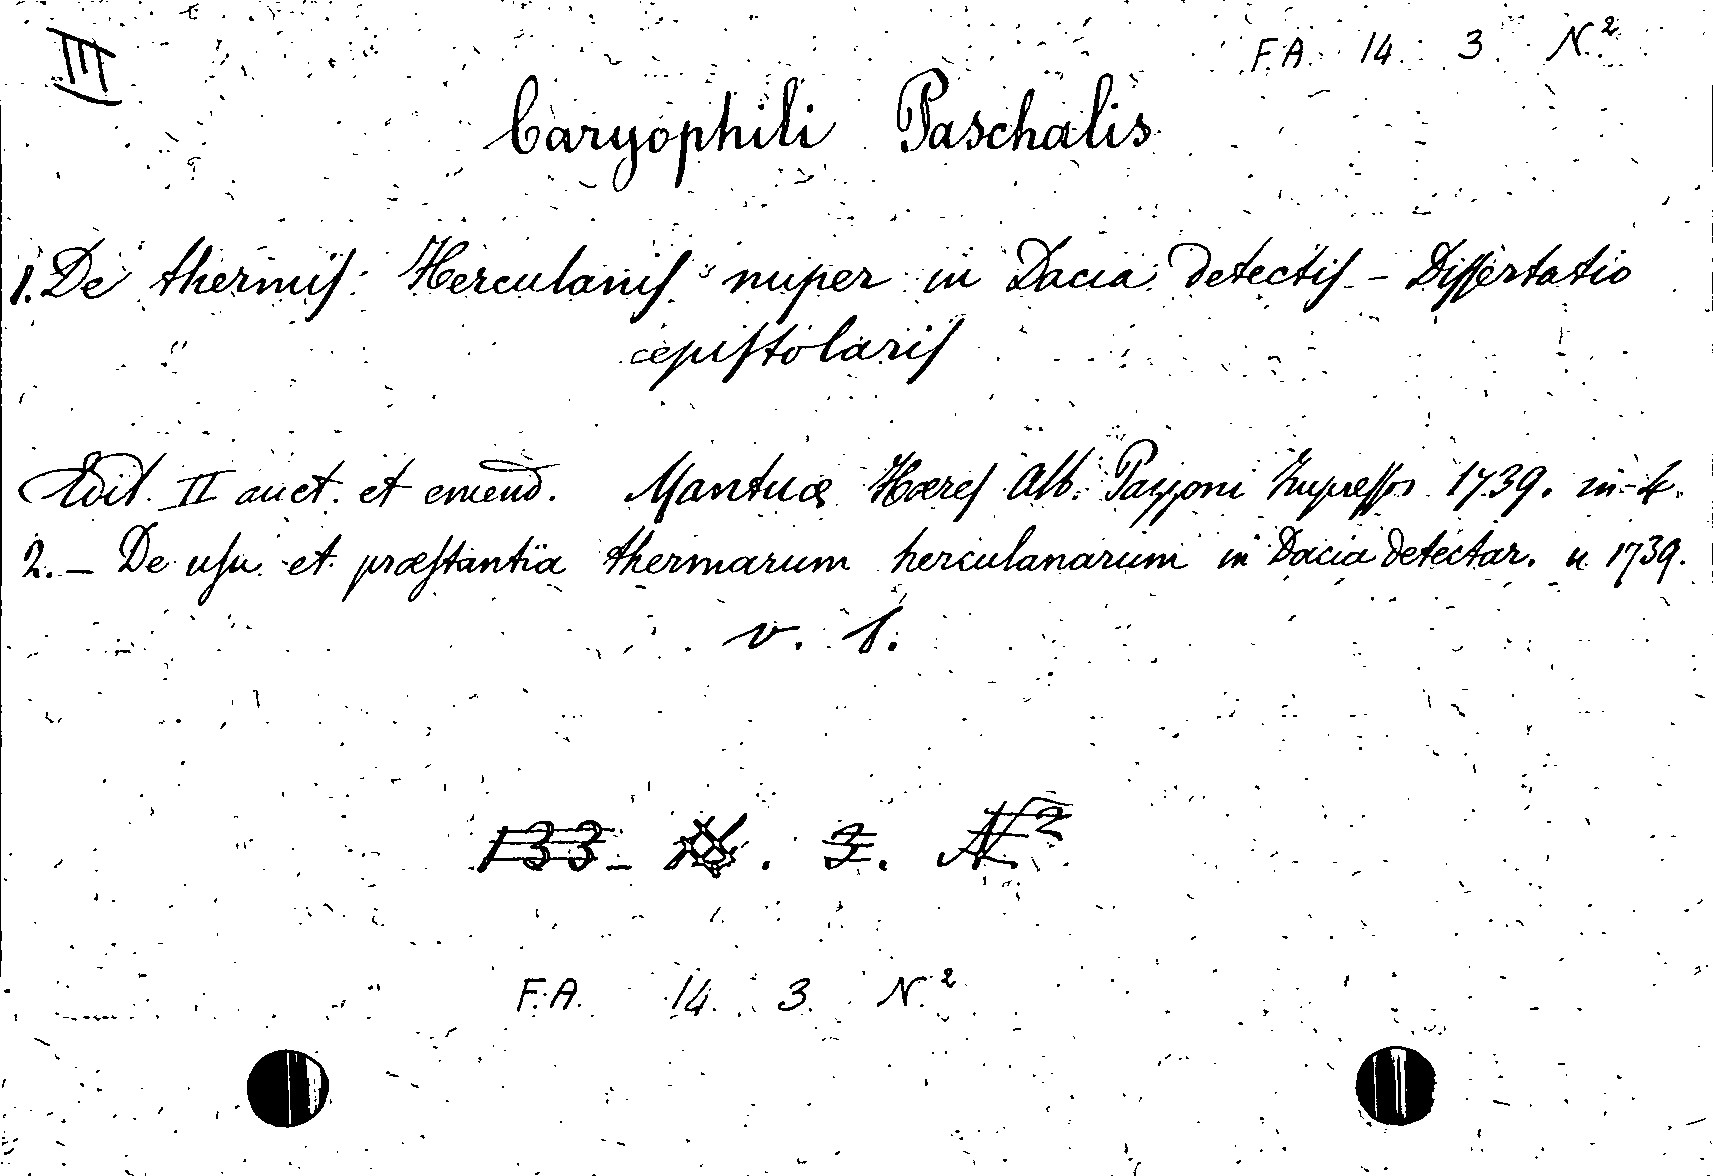 III
F.A. 14. 3. N.2
Caryophili Paschalis
1. De thermis Herculanis nuper in Dacia detectis - Dissertatio
epistolaris
Edit. II auct. et emend. Mantuæ Hæres Alb. Payyoni Impressor 1739. in-4.
2. - De usu et præstantia thermarum herculanarum in Dacia detectar. u 1739.
v. 1.
133- . 3. N2
F.A. 14. 3. N.2